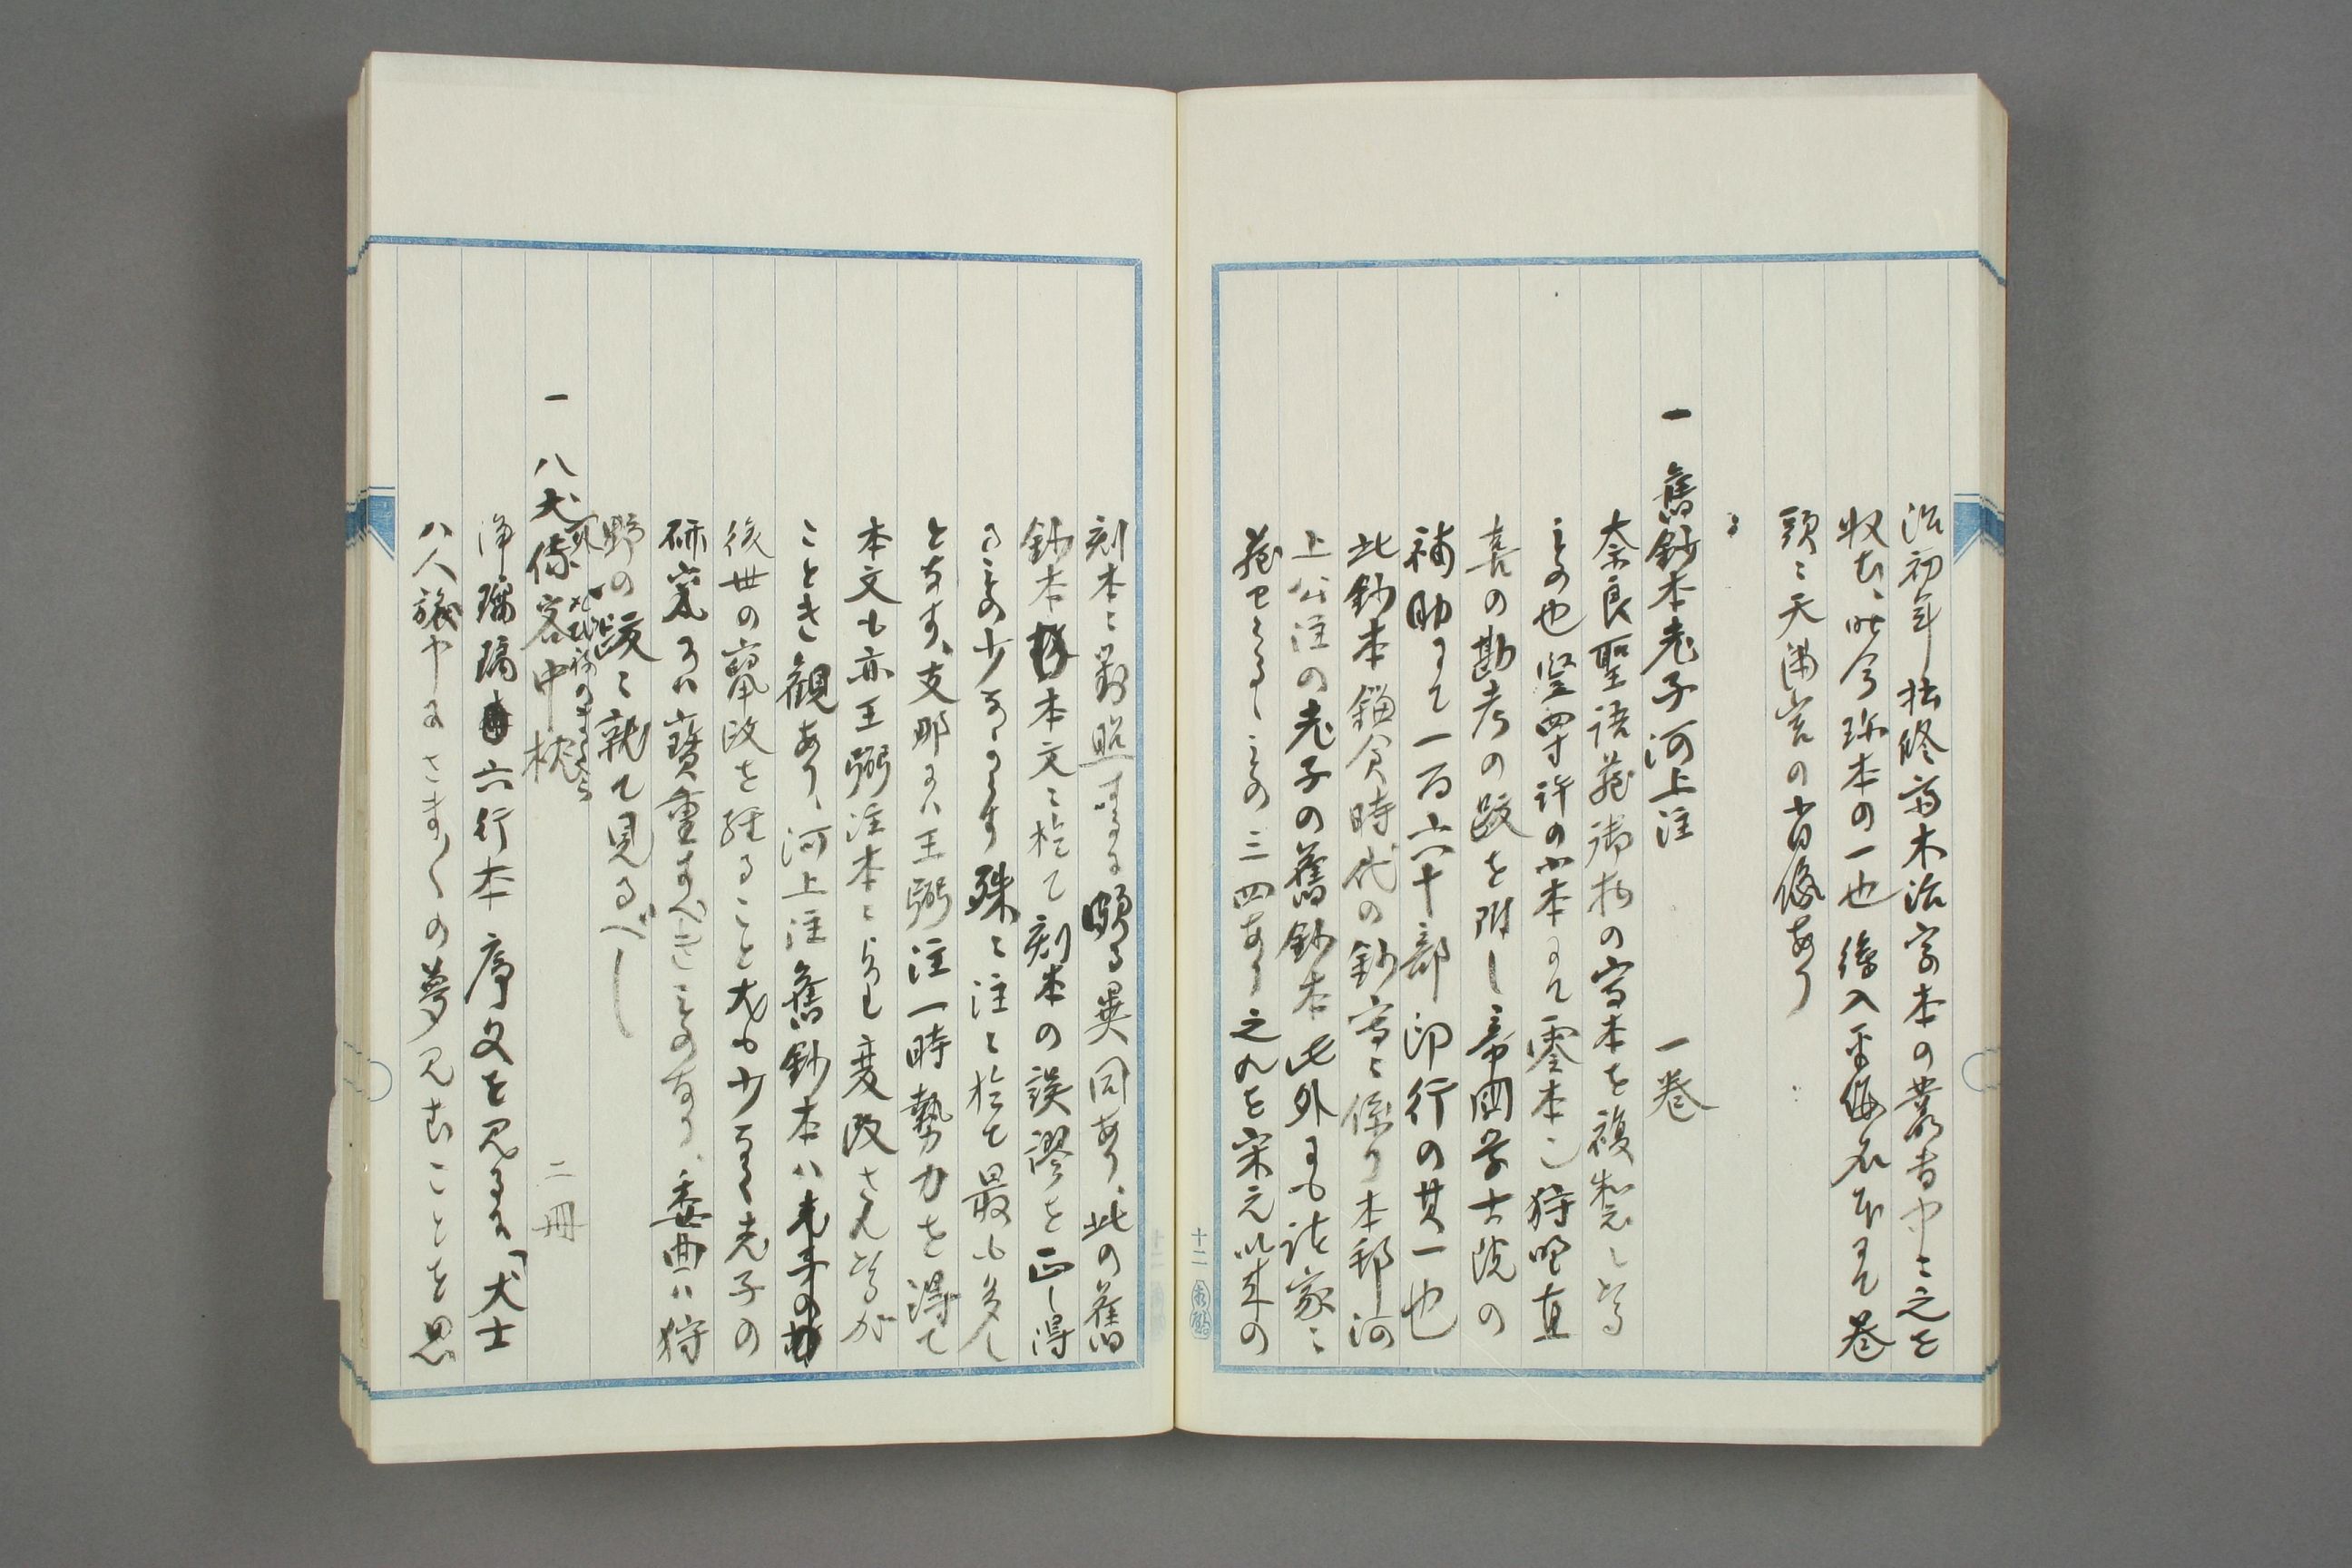 治初年 拙修斎木活字本の叢書中ニ之を
収む、此今珍本の一也 繪入平仮名本にて 巻
頭ニ天満宮の肖像あり
一 舊鈔本老子河上注 一巻
奈良聖語蔵御物の寫本を複製したる
もの也 竪四寸許の小本にて 零本也 狩野直
喜の勘考の跋を附し 帝國学士院の
補助にて一百六十部 印行の其一也
此鈔本鎌倉時代の鈔寫ニ係り 本邦河
上公注の老子の舊鈔本 此外にも諸家ニ
蔵せらるゝもの 三四あり 之れを宋元以来の
十二
刻本ニ対照するに 頗る異同あり、此の舊
鈔本 本文ニ於て 刻本の誤謬を正し得
るもの少なからす 殊ニ注ニ於て最も多し
とす、支那にハ王弼注一時勢力を得て
本文も亦王弼注本ニより変改さるが
ことき観あり、河上注 舊鈔本ハ
後世の竄改を経ること尤も少なく老子の
研究にハ寶重すべきものなり、委曲ハ狩
野の跋ニ就て見るべし
一 八犬傳客中枕 二冊
浄瑠璃 六行本 序文を見るに「犬士
八人旅中にさま〱の夢見むことを思